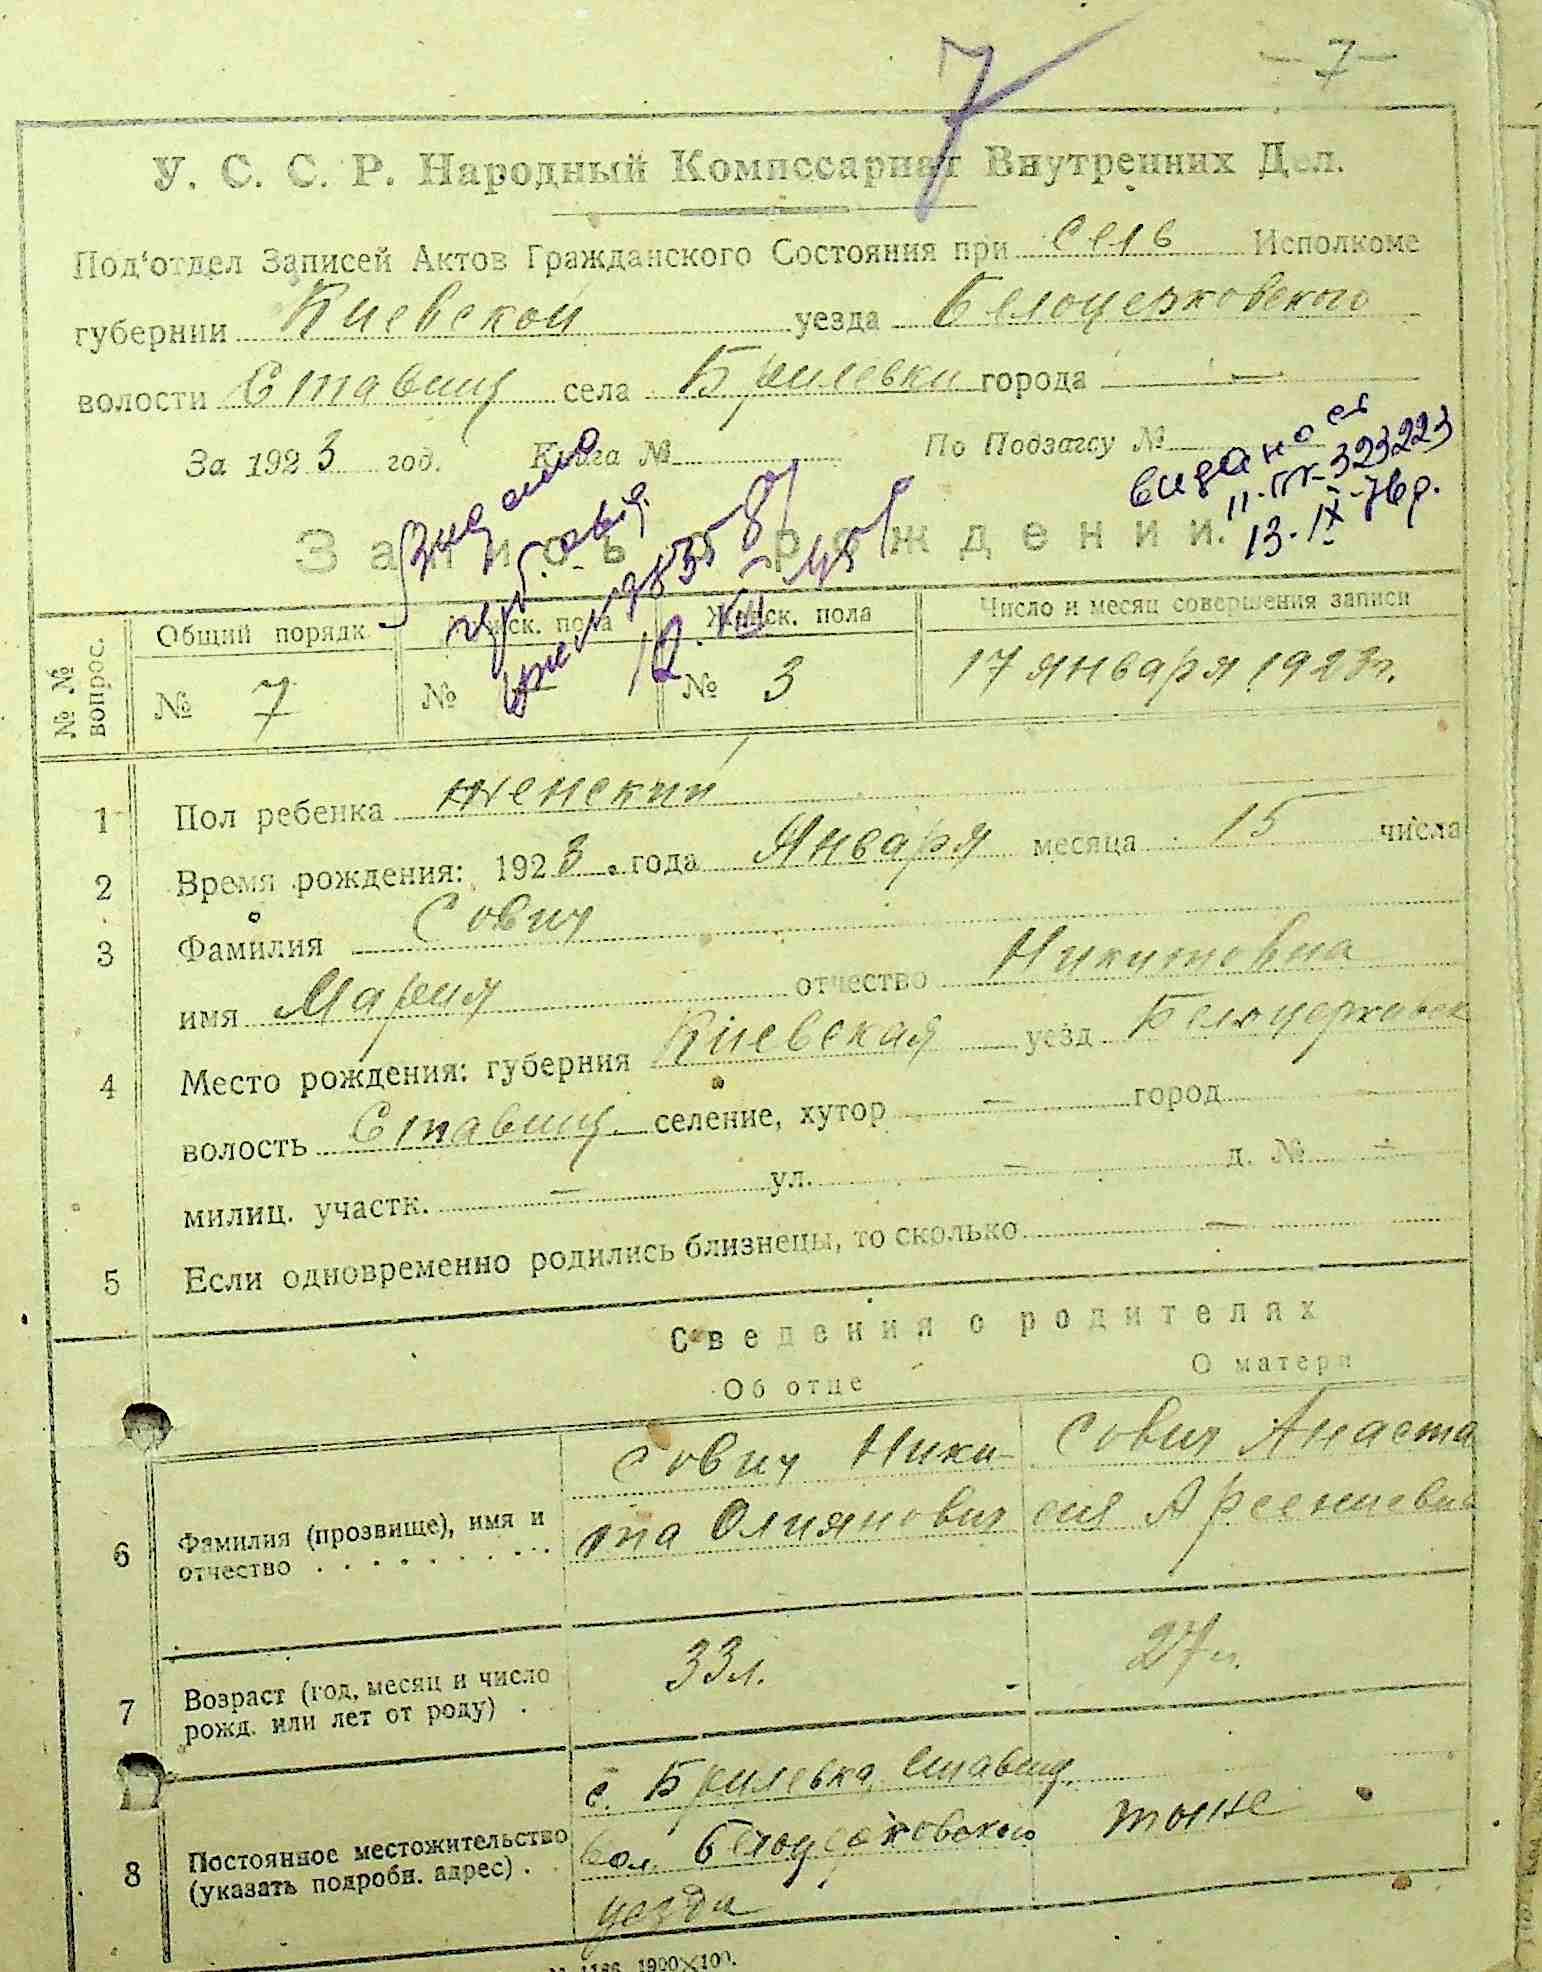 7
— 7 —
У. С. С. Р. Народный Комиссариат Внутренних Дел.
Под'отдел Записей Актов Гражданского Состояния при сель Исполкоме
губернии Киевской уезда Белоцерковского
волости Ставищ села Брилевки города —
За 1923 год. Книга № По Подзагсу №
видано св
II-ПК-323223
13-IX-76р.
Запись о рождении.
№ № вопрос. Общий порядк. Мужск. пола Женск. пола Число и месяц совершения записи
№ 7 № — № 3 17 января 1923г.
1 Пол ребенка женский
2 Время рождения: 1923 года Января месяца 15 числа
3 Фамилия Сович
имя Мария отчество Никитовна
4 Место рождения: губерния Киевская уезд Белоцерковск
волость Ставищ. селение, хутор — город —
милиц. участк. — ул. — д. № —
5 Если одновременно родились близнецы, то сколько —
Сведения о родителях
Об отце О матери
Сович Ники- Сович Анаста
6 Фамилия (прозвище), имя и отчество та Олиянович сия Арсениевна
33л. 27л.
7 Возраст (год, месяц и число
рожд. или лет от роду)
с. Брилевка, Ставищ.
8 Постоянное местожительство вол. Белоцерковского тоже
(указать подробн. адрес) уезда
1900×100.